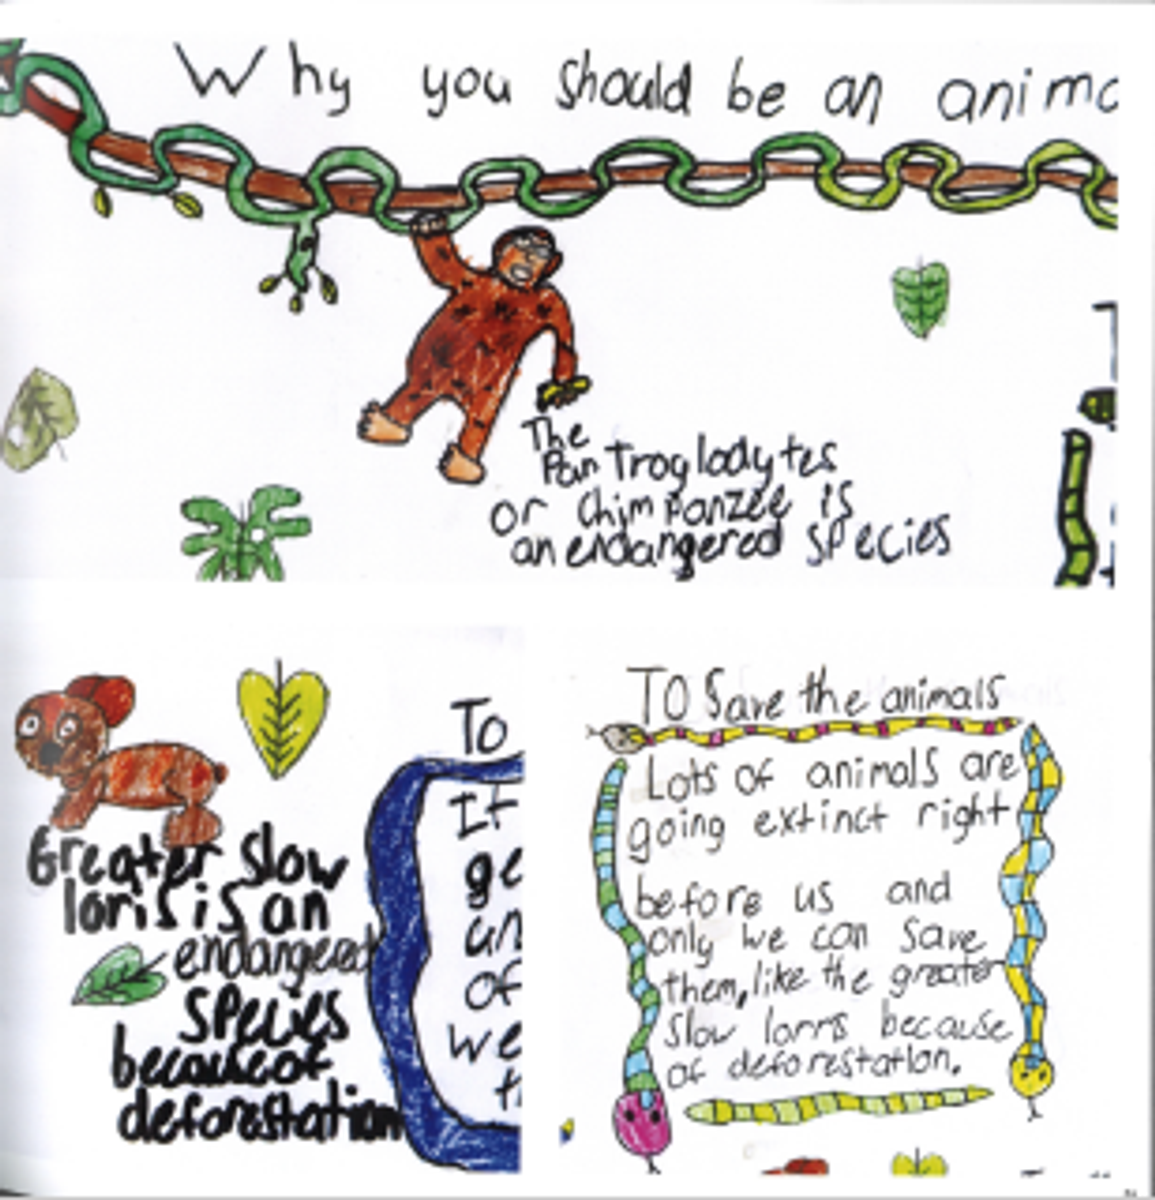 Why you should be an anima
The
Pan Troglodytes
or chimpanzee is
an endangered species
Greater slow
loris is an
endangered
species
because of
deforestation
To
It
ge
an
of
we
t
TO Save the animals
Lots of animals are
going extinct right
before us and
only we can save
them, like the greater
slow lorris because
of deforestation.